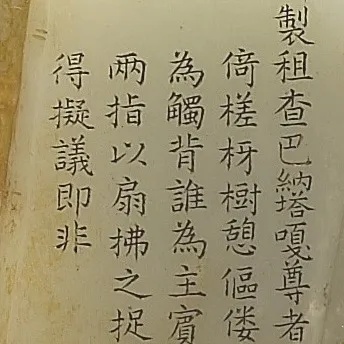 製租查巴納塔嘎尊者
倚槎枒樹憩傴僂
為觸背誰為主賓
兩指以扇拂之捉
得擬議即非